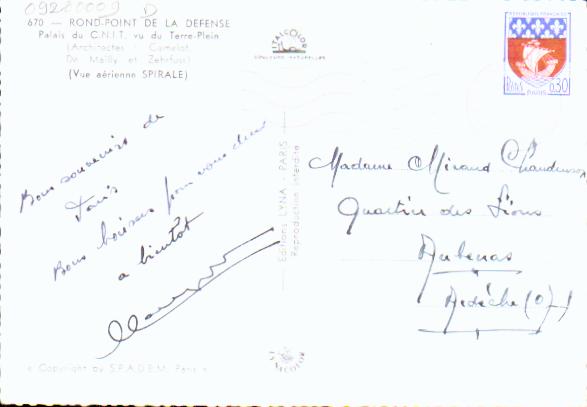 09280009 D
670 — ROND-POINT DE LA DEFENSE
Palais du C.N.I.T. vu du Terre-Plein
(Architectes : Camelot,
De Mailly et Zehrfuss)
(Vue aérienne SPIRALE)
ITALCOLOR
REPUBLIQUE FRANÇAISE
0,30
PARIS
Bons souvenirs de
Paris
Bons baisers pour vous deux
a bientôt
Editions LYNA - PARIS
Reproduction interdite
Madame Miraud
Quartier des Lions
Aubenas
Ardèche (07)
« Copyright by S.P.A.D.E.M. Paris »